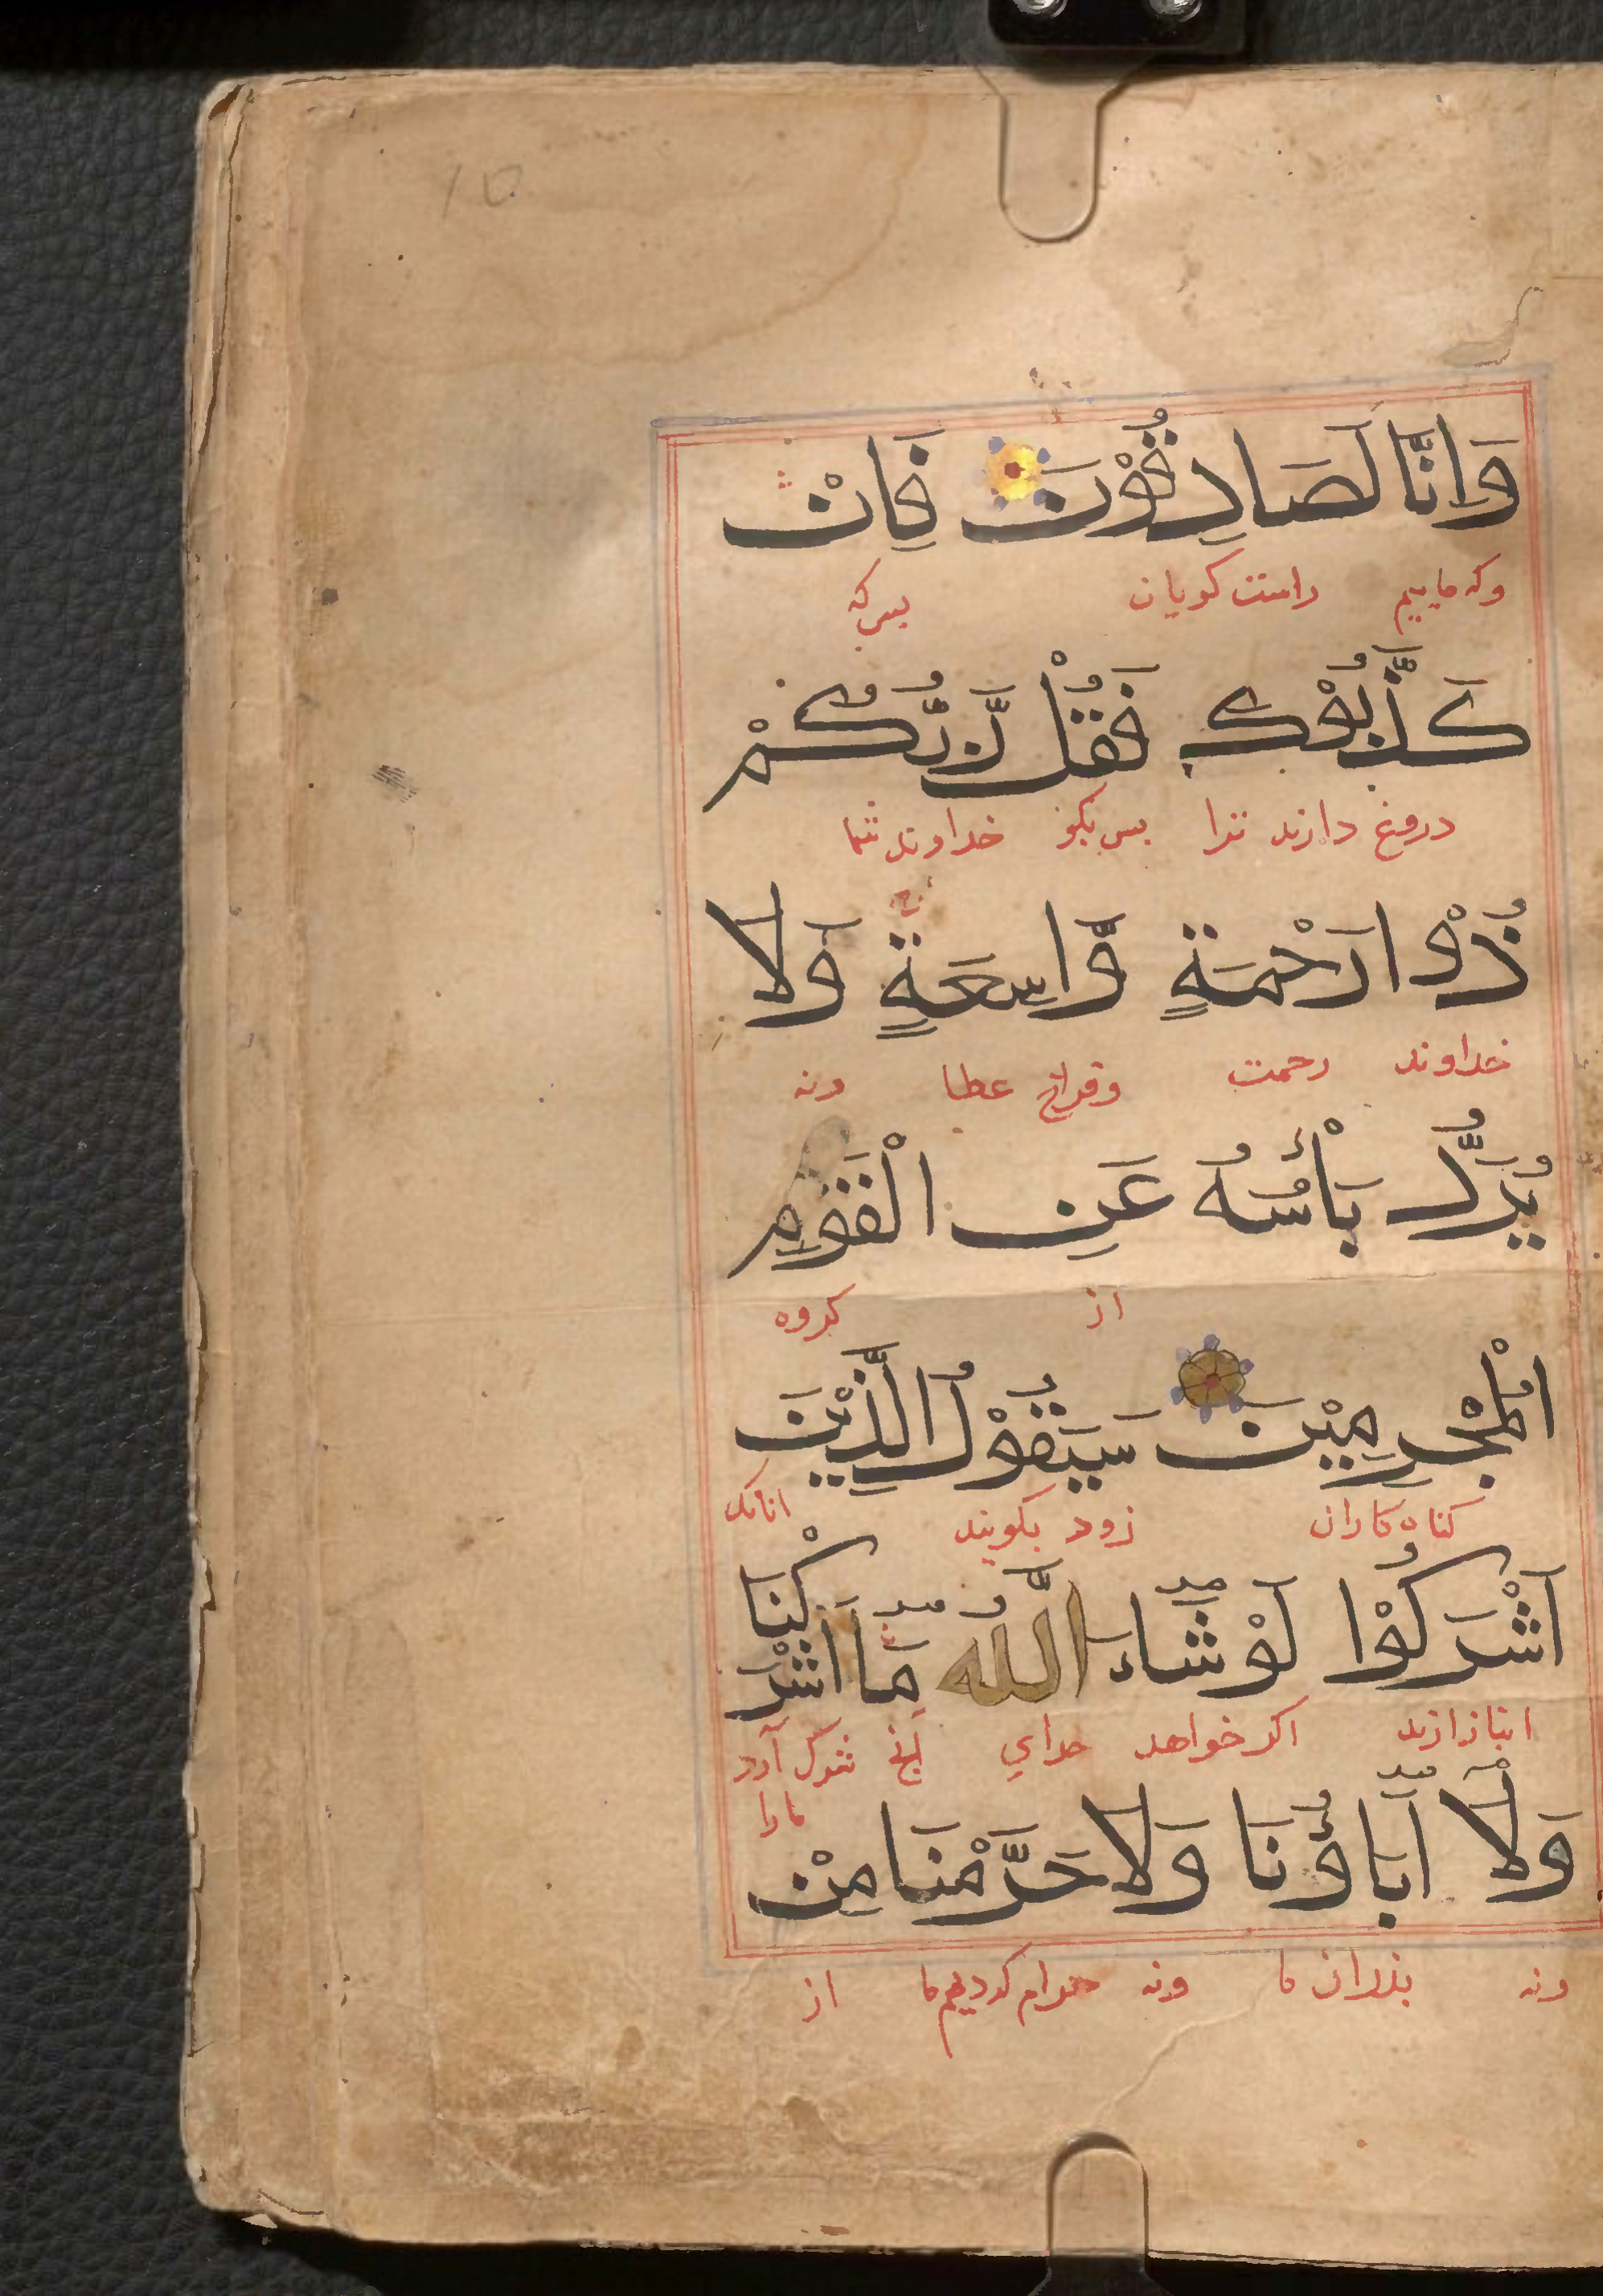 وَاِنَّا لَصَادِقُوْنَ فَاِنْ
وکه ماییم راست کویان بس که
كَذَّبُوْكَ فَقُلْ رَّبُّكُمْ
دروغ دارند ترا بس بکو خداوند شما
ذُوْ ارَحْمَةٍ وَّاسِعَةٍ وَلَا
خداوند رحمت وفراخ عطا ونه
يُرَدُّ بَأْسُهُ عَنِ الْقَوْمِ
از کروه
الْمُجْرِمِيْنَ سَيَقُوْلُ الَّذِيْنَ
کناه کاران زود بکویند انانکه
اَشْرَكُوْا لَوْ شَآءَ اللّٰهُ مَآ اَشْرَكْنَا
انباز ارند اکر خواهد خدای شرک آرد
مارا
وَلَآ اٰبَآؤُنَا وَلَا حَرَّمْنَا مِنْ
ونه بذران ما ونه حرام کردیم ما از